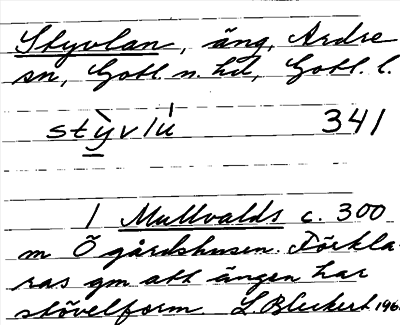 Styvlan, äng, Ardre
sn, Gotl. n. hd, Gotl. l.
stỳvlú 341
1 Mullvalds c. 300
m Ö gårdshusen. Förkla-
ras gm att ängen har
stövelform. L. Bleckert 196